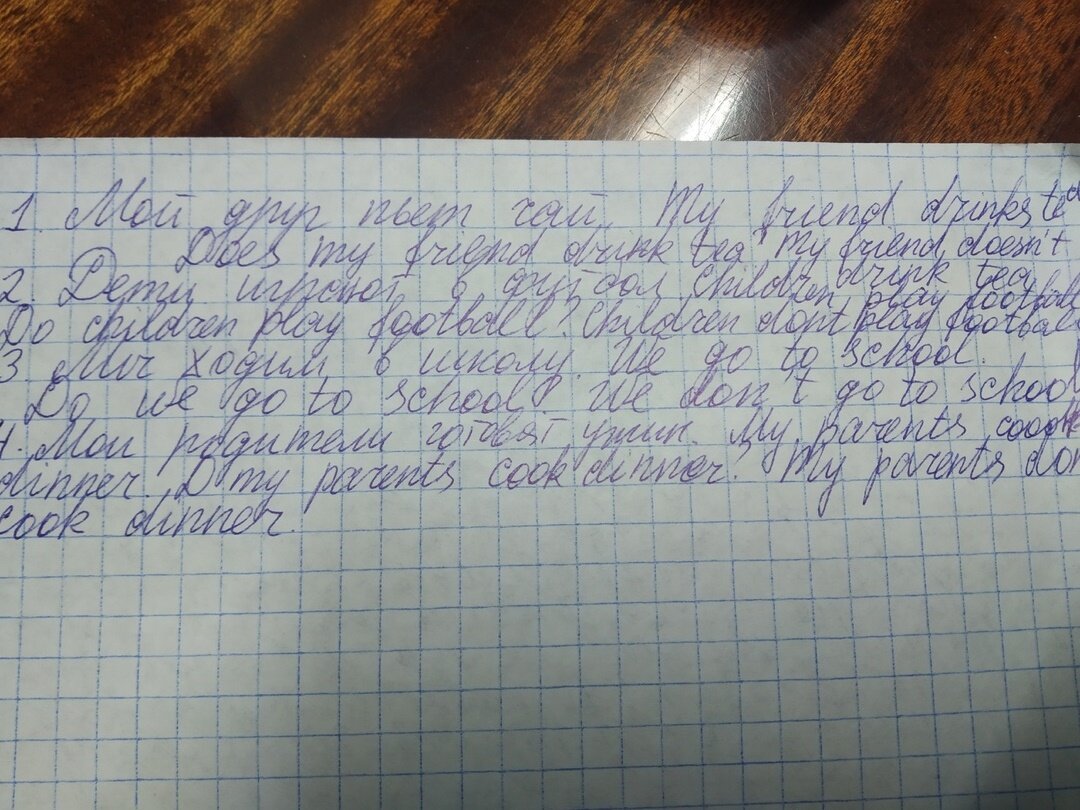 1. Мой друг пьет чай. My friend drinks tea
Does my friend drink tea? My friend doesn't
drink tea
2. Дети играют в футбол. Children play football
Do children play football? Children don't play football
3. Мы ходим в школу. We go to school.
Do we go to school? We don't go to school
4. Мои родители готовят ужин. My parents cook
dinner. D my parents cook dinner? My parents don
cook dinner.